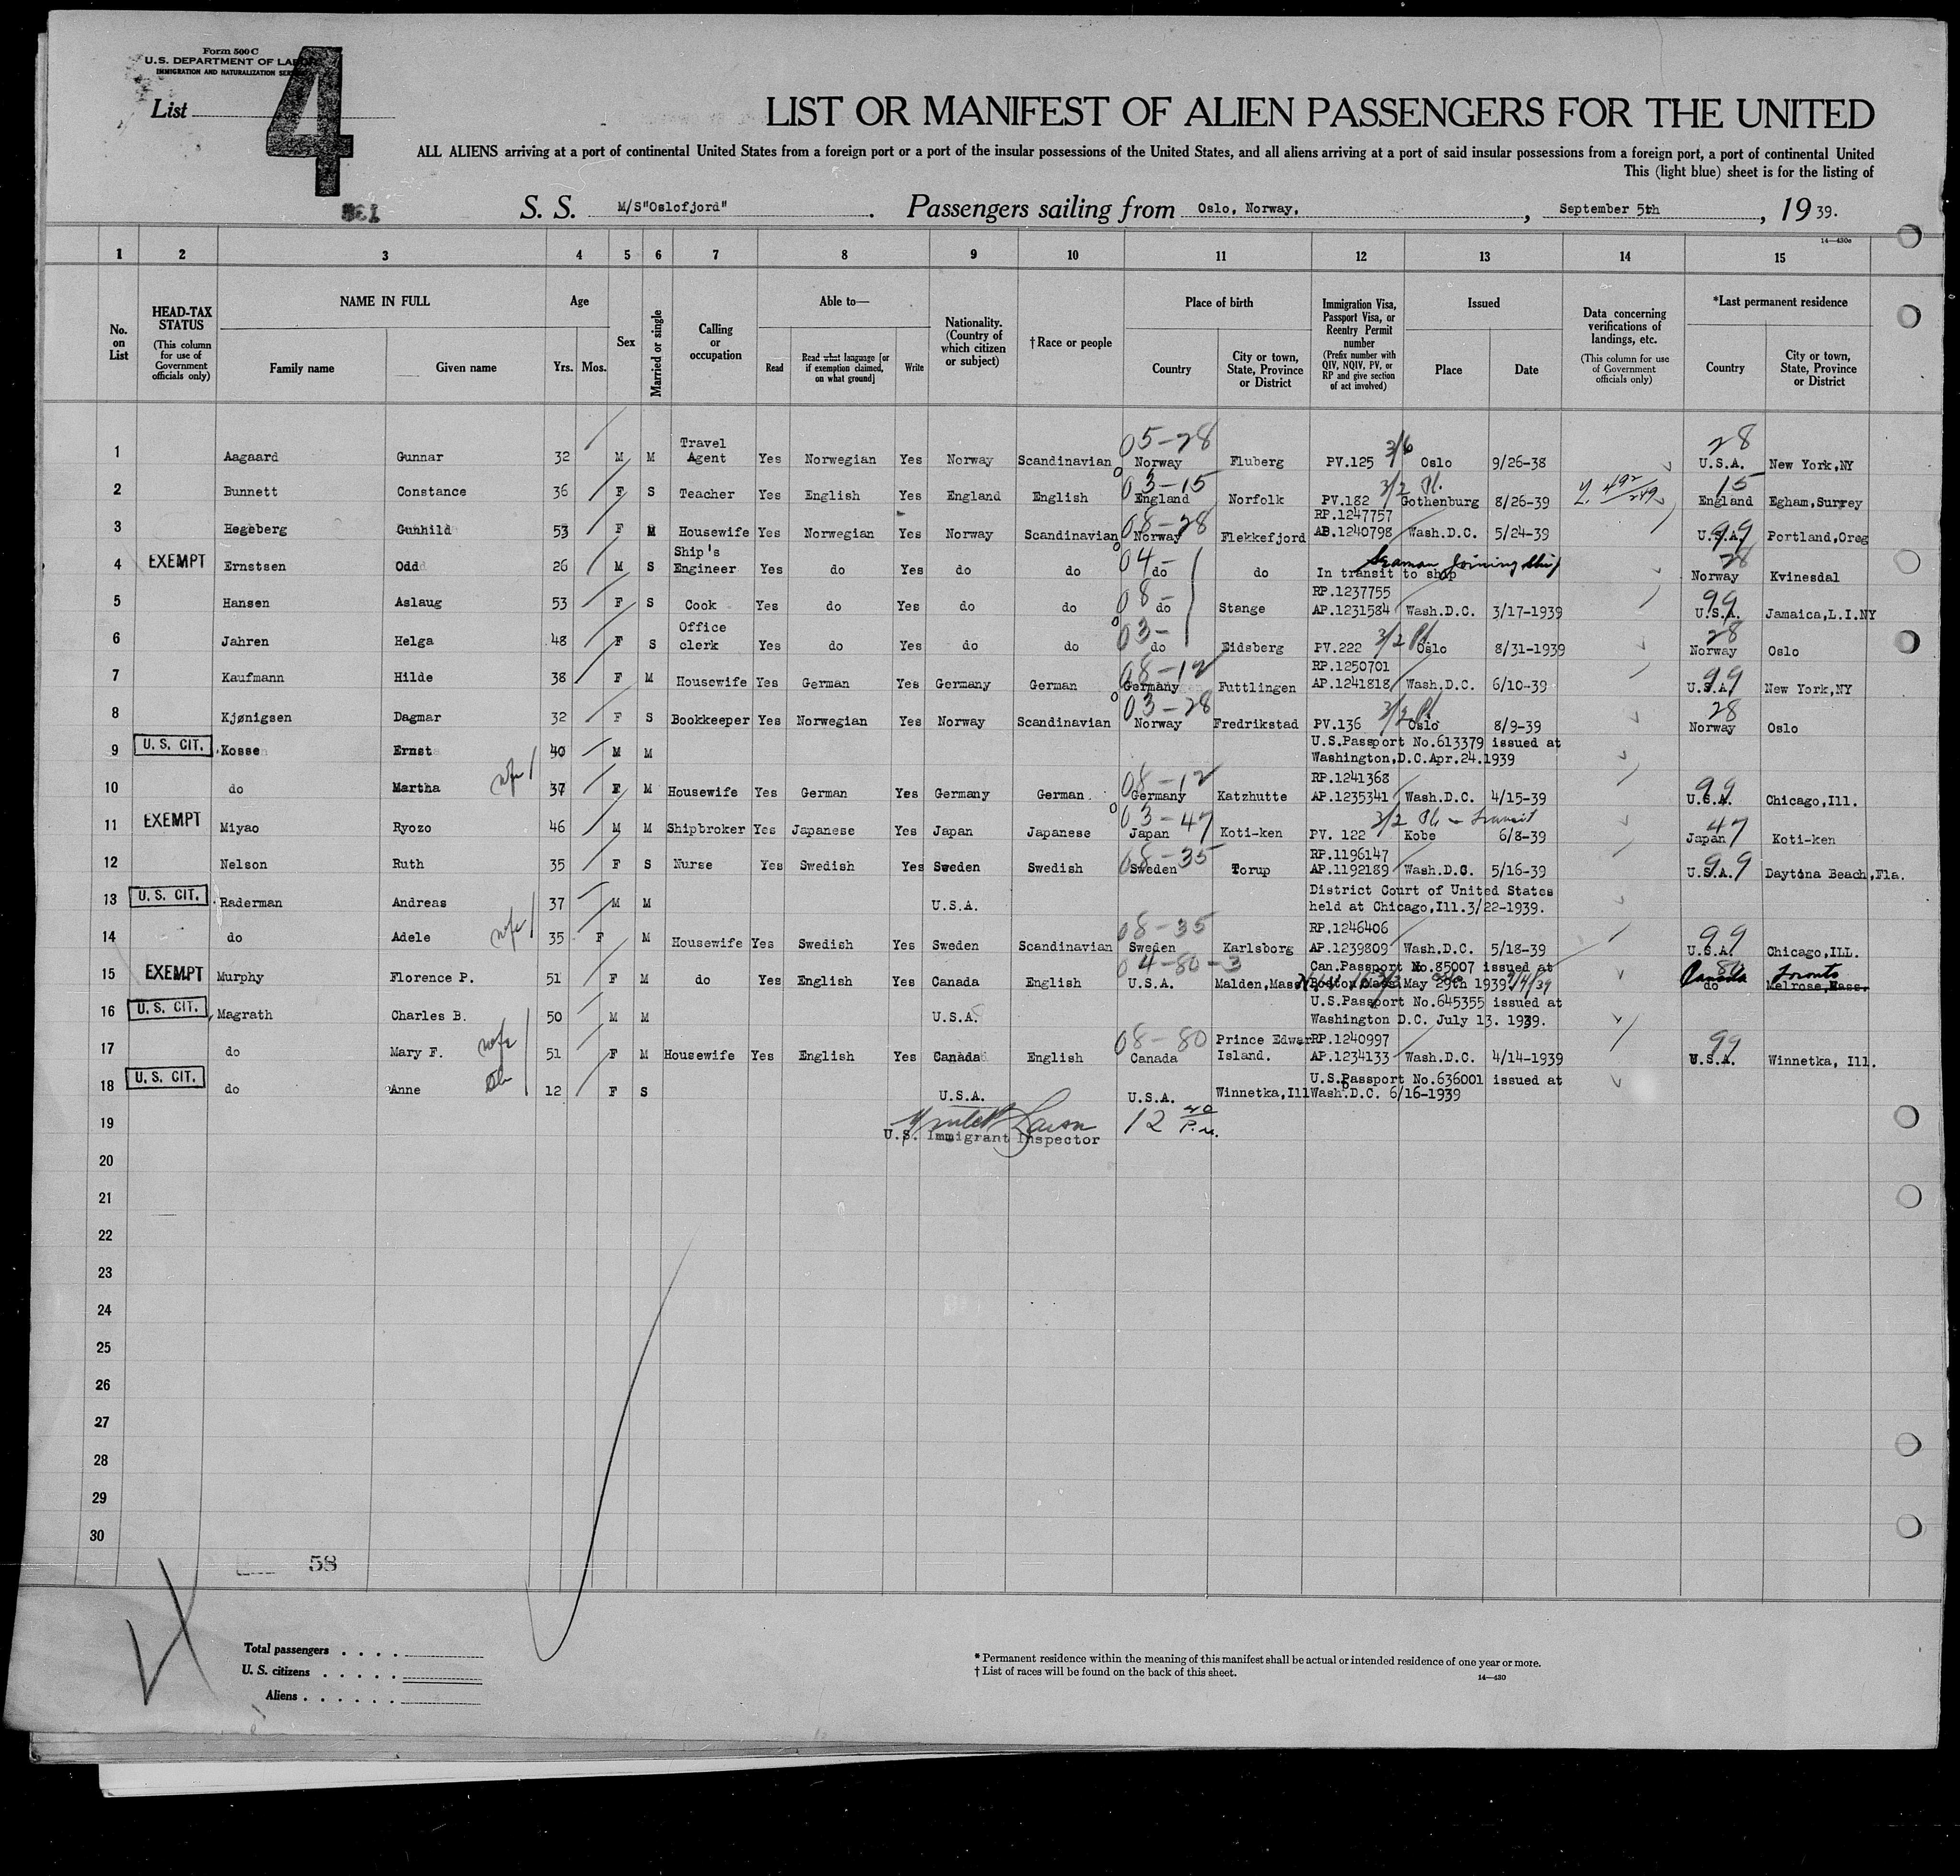 Form 500 C
U.S. DEPARTMENT OF LABOR
IMMIGRATION AND NATURALIZATION SERVICE
List 4
LIST OR MANIFEST OF ALIEN PASSENGERS FOR THE UNITED
ALL ALIENS arriving at a port of continental United States from a foreign port or a port of the insular possessions of the United States, and all aliens arriving at a port of said insular possessions from a foreign port, a port of continental United
This (light blue) sheet is for the listing of
S. S. M/S"Oslofjord". Passengers sailing from Oslo, Norway, , September 5th , 19 39.
14—430e
1 2 3 4 5 6 7 8 9 10 11 12 13 14 15
No. on List
HEAD-TAX STATUS (This column for use of Government officials only)
NAME IN FULL Family name Given name
Age Yrs. Mos.
Sex
Married or single
Calling or occupation
Able to— Read Read what language [or if exemption claimed, on what ground] Write
Nationality. (Country of which citizen or subject)
†Race or people
Place of birth Country City or town, State, Province or District
Immigration Visa, Passport Visa, or Reentry Permit number (Prefix number with QIV, NQIV, PV, or RP and give section of act involved)
Issued Place Date
Data concerning verifications of landings, etc. (This column for use of Government officials only)
*Last permanent residence Country City or town, State, Province or District
05-28 3/6 28
1 Aagaard Gunnar 32 M M Travel Agent Yes Norwegian Yes Norway Scandinavian Norway Fluberg PV.125 Oslo 9/26-38 U.S.A. New York,NY
03-15 3/2 Pl. 15
2 Bunnett Constance 36 F S Teacher Yes English Yes England English England Norfolk PV.182 Gothenburg 8/26-39 England Egham,Surrey
08-28 RP.1247757 99
3 Hegeberg Gunhild 53 F M Housewife Yes Norwegian Yes Norway Scandinavian Norway Flekkefjord AB.1240798 Wash.D.C. 5/24-39 U.S.A. Portland,Oreg
04- Seaman Joining Ship 28
4 EXEMPT Ernstsen Odd 26 M S Ship's Engineer Yes do Yes do do do do In transit to ship Norway Kvinesdal
08- RP.1237755 99
5 Hansen Aslaug 53 F S Cook Yes do Yes do do do Stange AP.1231584 Wash.D.C. 3/17-1939 U.S.A. Jamaica,L.I.NY
03- 3/2 Pl 28
6 Jahren Helga 48 F S Office clerk Yes do Yes do do do Eidsberg PV.222 Oslo 8/31-1939 Norway Oslo
08-12 RP.1250701 99
7 Kaufmann Hilde 38 F M Housewife Yes German Yes Germany German Germany Futtlingen AP.1241818 Wash.D.C. 6/10-39 U.S.A. New York,NY
03-28 3/2 Pl 28
8 Kjønigsen Dagmar 32 F S Bookkeeper Yes Norwegian Yes Norway Scandinavian Norway Fredrikstad PV.136 Oslo 8/9-39 Norway Oslo
9 U. S. CIT. Kosse Ernst 40 M M U.S.Passport No.613379 issued at Washington,D.C.Apr.24.1939
wife 08-12 RP.1241368 99
10 do Martha 37 F M Housewife Yes German Yes Germany German Germany Katzhutte AP.1235341 Wash.D.C. 4/15-39 U.S.A. Chicago,Ill.
03-47 3/2 Pl - Transit 47
11 EXEMPT Miyao Ryozo 46 M M Shipbroker Yes Japanese Yes Japan Japanese Japan Koti-ken PV. 122 Kobe 6/8-39 Japan Koti-ken
08-35 RP.1196147 99
12 Nelson Ruth 35 F S Nurse Yes Swedish Yes Sweden Swedish Sweden Torup AP.1192189 Wash.D.C. 5/16-39 U.S.A. Daytona Beach,Fla.
13 U. S. CIT. Raderman Andreas 37 M M U.S.A. District Court of United States held at Chicago,Ill.3/22-1939.
wife 08-35 RP.1246406 99
14 do Adele 35 F M Housewife Yes Swedish Yes Sweden Scandinavian Sweden Karlsborg AP.1239809 Wash.D.C. 5/18-39 U.S.A. Chicago,ILL.
04-80-3 Canada Toronto
15 EXEMPT Murphy Florence P. 51 F M do Yes English Yes Canada English U.S.A. Malden,Mass Can.Passport No.85007 issued at Boston Mass. May 29th 1939 do Melrose,Mass.
16 U. S. CIT. Magrath Charles B. 50 M M U.S.A. U.S.Passport No.645355 issued at Washington D.C. July 13. 1939.
wife 08-80 RP.1240997 99
17 do Mary F. 51 F M Housewife Yes English Yes Canada English Canada Prince Edwar Island. AP.1234133 Wash.D.C. 4/14-1939 U.S.A. Winnetka, Ill.
18 U. S. CIT. do Anne 12 F S U.S.A. U.S.A. Winnetka,Ill U.S.Passport No.636001 issued at Wash.D.C. 6/16-1939
19 12 P.M.
U.S. Immigrant Inspector
20
21
22
23
24
25
26
27
28
29
30
58
Total passengers . . . .
U. S. citizens . . . . .
Aliens . . . . . .
* Permanent residence within the meaning of this manifest shall be actual or intended residence of one year or more.
† List of races will be found on the back of this sheet.
14—430